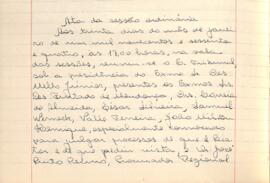 Ata da sessão ordinária
Aos trinta dias do mês de janei
ro de mil novecentos e sessenta
e quatro, às 13,00 horas, na sala
das sessões, reuniu-se o E. Tribunal
sob a presidência do Exmo Sr. Des.
Mello Júnior, presentes os Exmos Srs.
Des. Furtado de Mendonça, Drs. Garcia
de Almeida, Cesar Silveira, Samuel
Werneck, Valle Ferreira, João Milton
Henrique, especialmente convocado
para julgar processos de que é Rela
tor e de que pediu vista e Dr. José
Pinto Relvas, Procurador Regional